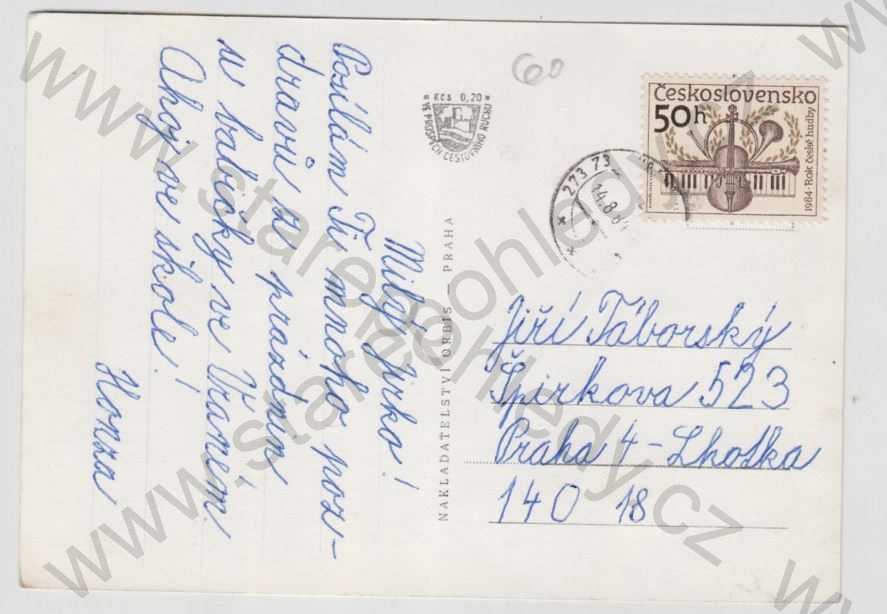 Milý Jirko!
Posílám Ti mnoho poz-
dravů z prázdnin
u babičky ve Vraném.
Ahoj ve škole!
Honza
60
Kčs 0,20
NAKLADATELSTVÍ ORBIS — PRAHA
Československo
50h
1984 · Rok české hudby
273 73
14.8.84
Jiří Táborský
Špirkova 523
Praha 4 - Lhotka
140 18
www.starepohledy.cz
www.starepohledy.cz